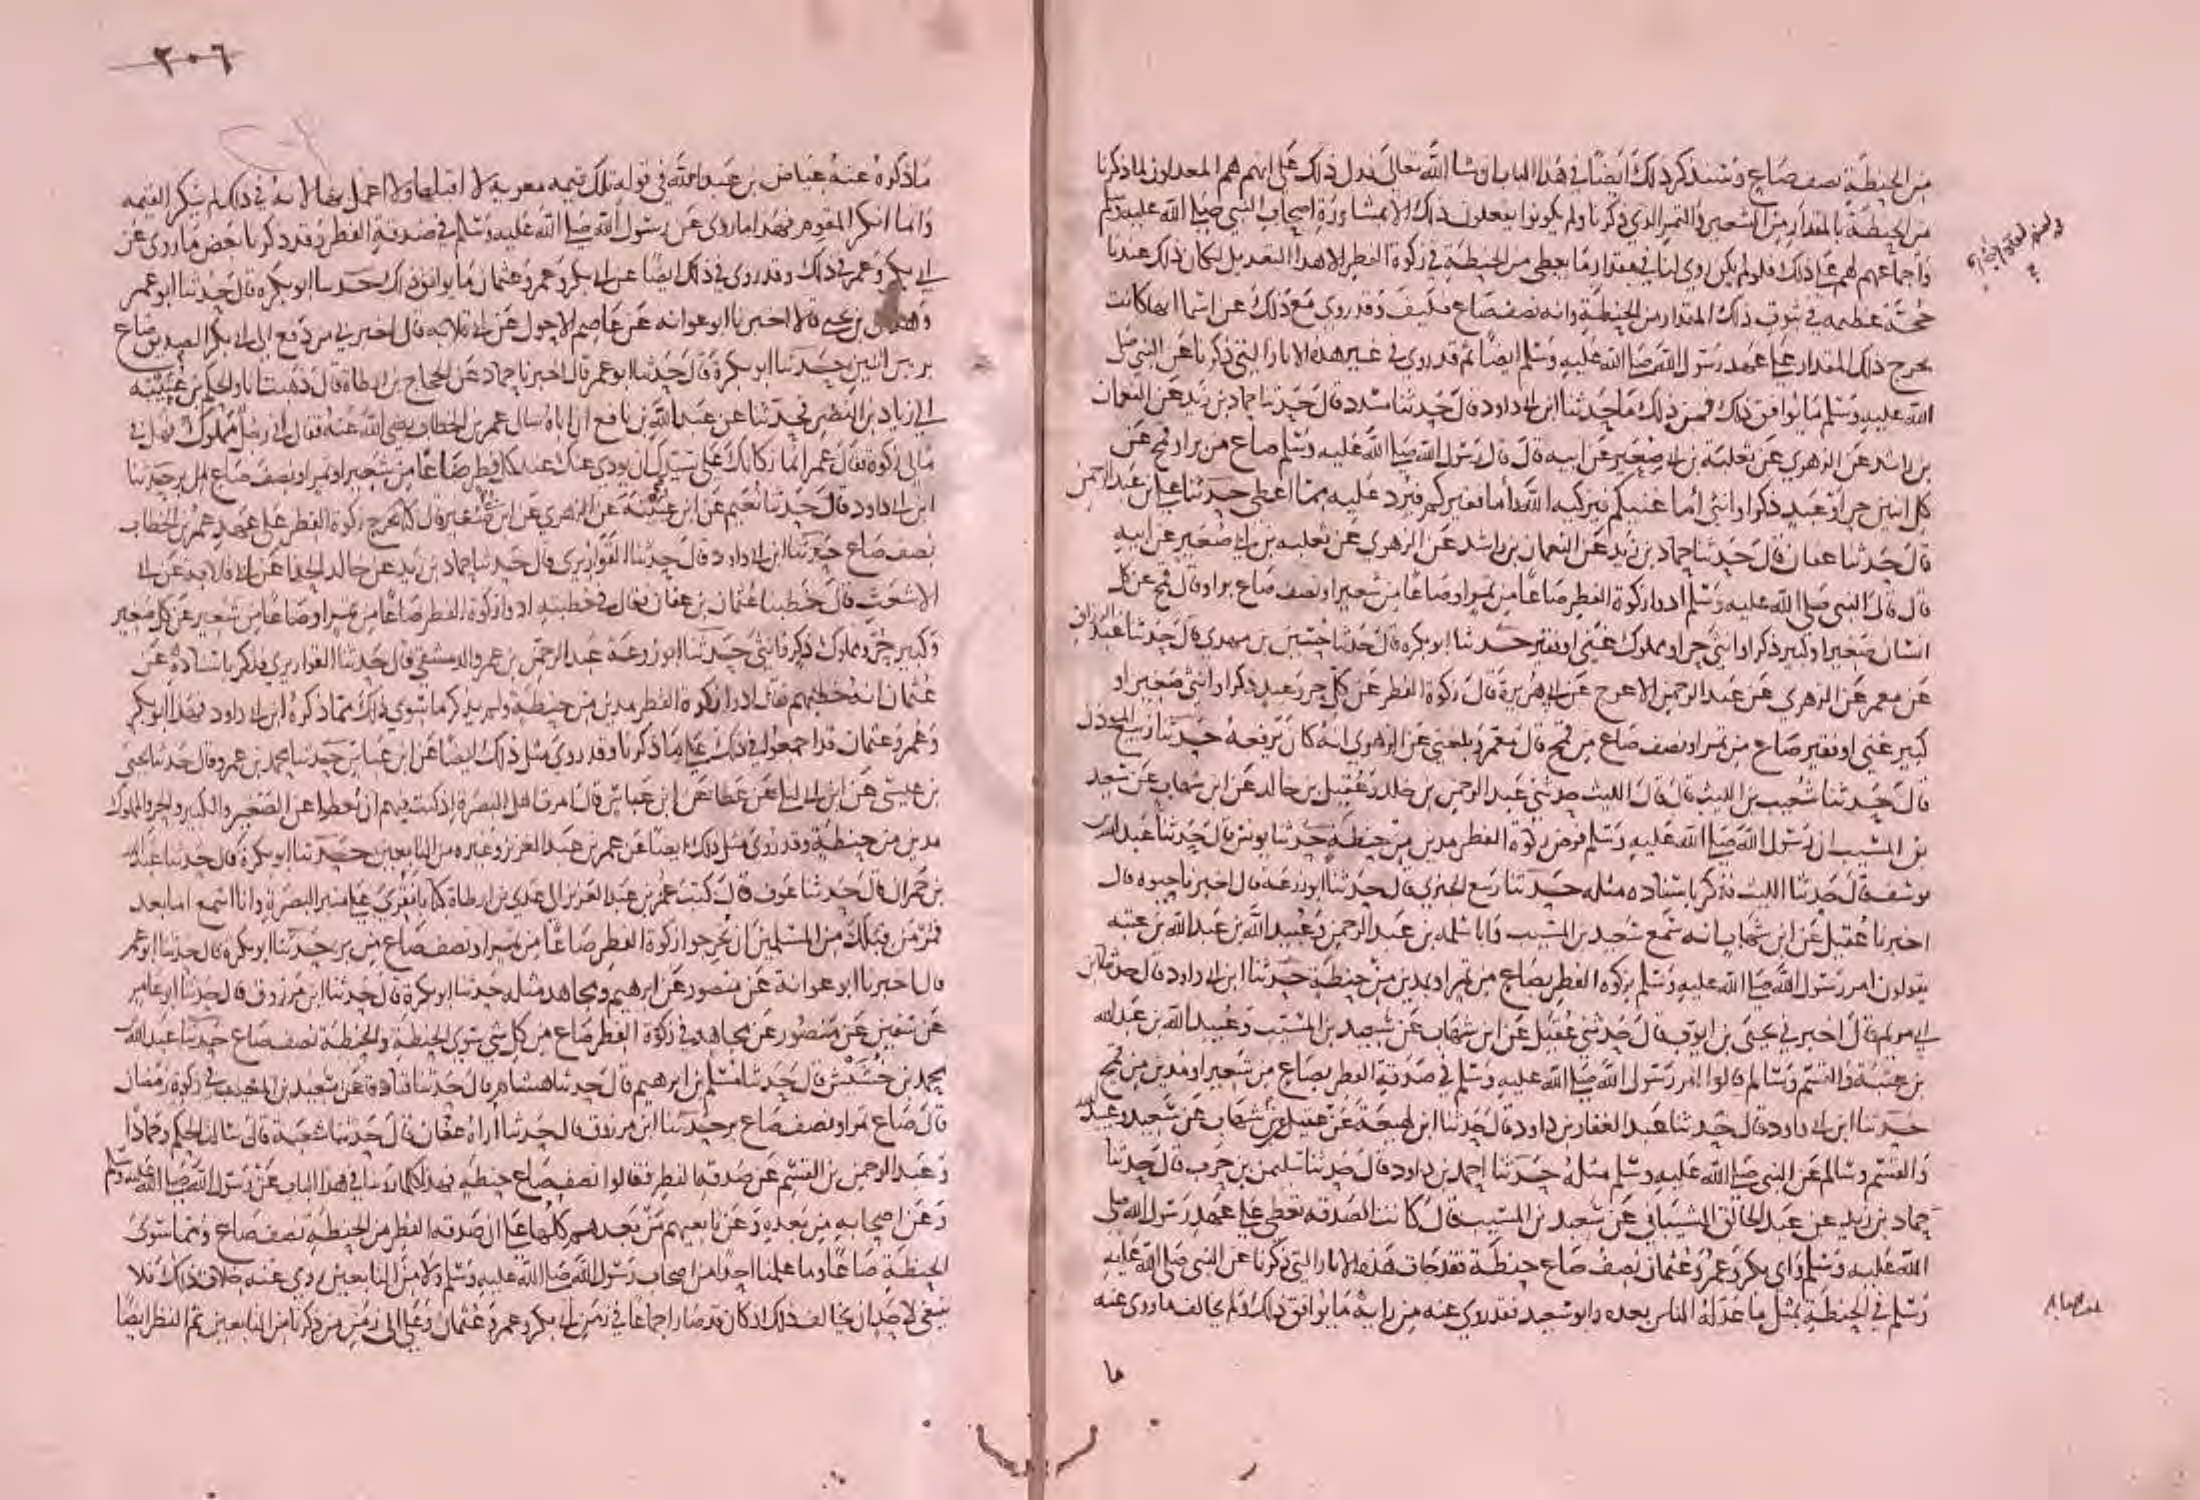 من الحنطة نصف صاع وسنذكر ذلك أيضا في هذا الباب إن شا الله تعالى فدل ذلك على انهم هم المعدلون لما ذكرنا
من الحنطة بالمقدار من الشعير والتمر الذي ذكرنا ولم يكونوا يفعلون ذلك الا بمشاورة اصحاب النبي صلى الله عليه وسلم
واجماعهم لهم على ذلك فلو لم يكن روي لنا في مقدار ما يعطى من الحنطة في زكوة الفطر الا هذا التعديل لكان ذلك عندنا
حجة عظيمه في ثبوت ذلك المقدار من الحنطة وانه نصف صاع فكيف وقد روي مع ذلك عن اسما انها كانت
تخرج ذلك المقدار على عهد رسول الله صلى الله عليه وسلم ايضا ثم قد روي في غير هذه الاثار التي ذكرنا عن النبي صلى
الله عليه وسلم ما يوافق ذلك فمن ذلك ما حدثنا ابن ابي داود قال حدثنا مسدد قال حدثنا حماد بن زيد عن النعمان
بن راشد عن الزهري عن ثعلبة بن ابي صعير عن ابيه قال قال رسول الله صلى الله عليه وسلم صاع من بر او قمح عن
كل اثنين حر او عبد ذكر او انثى اما غنيكم فيزكيه الله واما فقيركم فيرد عليه مما اعطى حدثنا علي بن عبد الرحمن
قال حدثنا عفان قال حدثنا حماد بن زيد عن النعمان بن راشد عن الزهري عن ثعلبه بن ابي صعير عن ابيه
قال قال النبي صلى الله عليه وسلم ادوا زكوة الفطر صاعا من تمر او صاعا من شعير او نصف صاع بر او قال قمح عن كل
انسان صغير او كبير ذكر او انثى حر او مملوك غني او فقير حدثنا ابو بكره قال حدثنا حسين بن مهدي قال حدثنا عبد الرزاق
عن معمر عن الزهري عن عبد الرحمن الاعرج عن ابي هريرة قال زكوة الفطر عن كل حر وعبد ذكر او انثى صغير او
كبير غني او فقير صاع من تمر او نصف صاع من قمح قال معمر وبلغني عن الزهري انه كان يرفعه حدثنا ربيع المؤذن
قال حدثنا شعيب بن الليث قال قال الليث حدثني عبد الرحمن بن خالد وعقيل بن خالد عن ابن شهاب عن سعيد
بن المسيب ان رسول الله صلى الله عليه وسلم فرض زكوة الفطر مدين من حنطة حدثنا يونس قال حدثنا عبد الله بن
يوسف قال حدثنا الليث فذكر باسناده مثله حدثنا ربيع الجيزي قال حدثنا ابو زرعة قال اخبرنا حيوه قال
اخبرنا عقيل عن ابن شهاب انه سمع سعيد بن المسيب وابا سلمه بن عبد الرحمن وعبيد الله بن عبد الله بن عتبه
يقولون امر رسول الله صلى الله عليه وسلم بزكوه الفطر بصاع من تمر او بمدين من حنطة حدثنا ابن ابي داود قال حدثنا ابن
ابي مريم قال اخبرني يحيى بن ايوب قال حدثني عقيل عن ابن شهاب عن سعيد بن المسيب وعبيد الله بن عبد الله
بن عتبة والقسم وسالم قالوا امر رسول الله صلى الله عليه وسلم في صدقة الفطر بصاع من شعير او مدين من قمح
حدثنا ابن ابي داود قال حدثنا عبد الغفار بن داود قال حدثنا ابن لهيعة عن عقيل عن ابن شهاب عن سعيد وعبيد الله
والقسم وسالم عن النبي صلى الله عليه وسلم مثله حدثنا احمد بن داود قال حدثنا سليمن بن حرب قال حدثنا
حماد بن زيد عن عبد الخالق الشيباني عن سعيد بن المسيب قال كانت الصدقه تعطى على عهد رسول الله صلى
الله عليه وسلم وابي بكر وعمر وعثمان نصف صاع حنطة فقد جات هذه الاثار التي ذكرنا عن النبي صلى الله عليه
وسلم في الحنطة بمثل ما عدله الناس بعده وابو سعيد فقد روي عنه من رايه ما يوافق ذلك ولم يخالف ما روى عنه
ما
٣٠٦
ما ذكره عنه عياض بن عبد الله في قوله تلك قيمه معويه لا اقبلها ولا اعمل بها لانه في ذلك لم ينكر القيمه
وانما انكر المقوم فهذا ما روي عن رسول الله صلى الله عليه وسلم في صدقة الفطر وقد ذكرنا بعض ما روى عن
ابي بكر وعمر في ذلك وقد روي في ذلك ايضا عن ابي بكر وعمر وعثمان ما يوافق ذلك حدثنا ابو بكره قال حدثنا ابو عمر
وهلال بن يحيى قالا اخبرنا ابو عوانه عن عاصم الاحول عن ابي قلابه قال اخبرني من دفع الى ابي بكر الصديق صاع
بر بين اثنين حدثنا ابو بكرة قال حدثنا ابو عمر قال اخبرنا حماد عن الحجاج بن ارطاة قال ذهبت انا والحكم بن عتيبة
الى زياد بن النضر فحدثنا عن عبد الله بن نافع ان اباه سال عمر بن الخطاب رضي الله عنه فقال اني رجل مملوك فهل في
مالي زكوة فقال عمر انما زكاتك على سيدك ان يودي عنك عند كل فطر صاعا من شعير او تمر او نصف صاع من بر حدثنا
ابن ابي داود قال حدثنا نعيم عن ابن عيينة عن الزهري عن ابن ابي صعير قال كنا نخرج زكوة الفطر على عهد عمر بن الخطاب
نصف صاع حدثنا ابن ابي داود قال حدثنا القواريري قال حدثنا حماد بن زيد عن خالد الحذا عن ابي قلابه عن ابي
الاشعث قال خطبنا عثمان بن عفان فقال في خطبته ادوا زكوة الفطر صاعا من تمر او صاعا من شعير عن كل صغير
وكبير حر ومملوك ذكر وانثى حدثنا ابو زرعة عبد الرحمن بن عمرو الدمشقي قال حدثنا القواريري فذكر باسناده عن
عثمان انه خطبهم فقال ادوا زكوة الفطر مدين من حنطة ولم يذكر ما سوى ذلك مما ذكره ابن ابي داود فهذا ابو بكر
وعمر وعثمان قد اجمعوا في ذلك على ما ذكرنا وقد روي مثل ذلك ايضا عن ابن عباس حدثنا محمد بن عمرو قال حدثنا يحيى
بن عيسى عن ابن ابي ليلى عن عطا عن ابن عباس قال امرت اهل البصرة اذ كنت فيهم ان يعطوا عن الصغير والكبير والحر والمملوك
مدين من حنطة وقد روي مثل ذلك ايضا عن عمر بن عبد العزيز وغيره من التابعين حدثنا ابو بكرة قال حدثنا عبد الله
بن حمران قال حدثنا عوف قال كتب عمر بن عبد العزيز الى عدي بن ارطاة كتابا فقرئ على منبر البصرة وانا اسمع اما بعد
فمر من قبلك من المسلمين ان يخرجوا زكوة الفطر صاعا من تمر او نصف صاع من بر حدثنا ابو بكره قال حدثنا ابو عمر
قال اخبرنا ابو عوانة عن منصور عن ابرهيم ومجاهد مثله حدثنا ابو بكرة قال حدثنا ابن مرزوق قال حدثنا ابو عامر
عن سفين عن منصور عن مجاهد في زكوة الفطر صاع من كل شي سوى الحنطة والحنطة نصف صاع حدثنا عبد الله بن
محمد بن خشيش قال حدثنا مسلم بن ابرهيم قال حدثنا هشام قال حدثنا قتادة عن سعيد بن المسيب في زكوة رمضان
قال صاع تمر او نصف صاع بر حدثنا ابن مرزوق قال حدثنا اراه عفان قال حدثنا شعبة قال سالت الحكم وحمادا
وعبد الرحمن بن القسم عن صدقه الفطر فقالوا نصف صاع حنطة فهذا كلما روينا في هذا الباب عن رسول الله صلى الله عليه وسلم
وعن اصحابه من بعده وعن تابعيهم من بعدهم كلها على ان صدقه الفطر من الحنطة نصف صاع ومما سوى
الحنطة صاعا وما علمنا احدا من اصحاب رسول الله صلى الله عليه وسلم ولا من التابعين روي عنه خلاف ذلك فلا
ينبغي لاحد ان يخالف ذلك اذ كان قد صار اجماعا في زمن ابي بكر وعمر وعثمان وعلي الى زمن من ذكرنا من التابعين ثم النظر ايضا